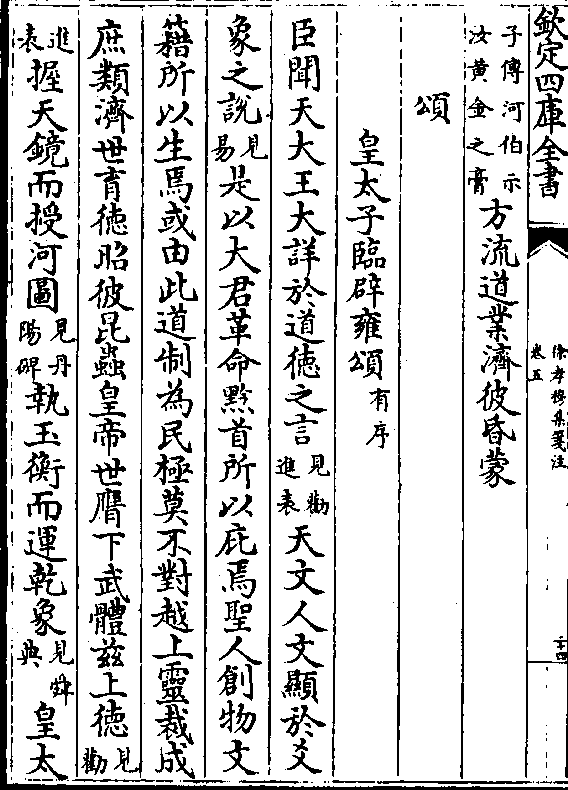 欽定四庫全書
徐孝穆集箋注
卷五
二十四
子傳河伯示汝黄金之膏方流道業濟彼昏蒙
頌
皇太子臨辟雍頌有序
臣聞天大王大詳於道徳之言見勸進表天文人文顯於爻
象之說見易是以大君革命黔首所以庇焉聖人創物文
籍所以生焉或由此道制為民極莫不對越上靈裁成
庶類濟世育徳昭彼昆蟲皇帝世膺下武體兹上徳見勸
進表握天鏡而授河圖見丹陽碑執玉衡而運乾象見舜典皇太